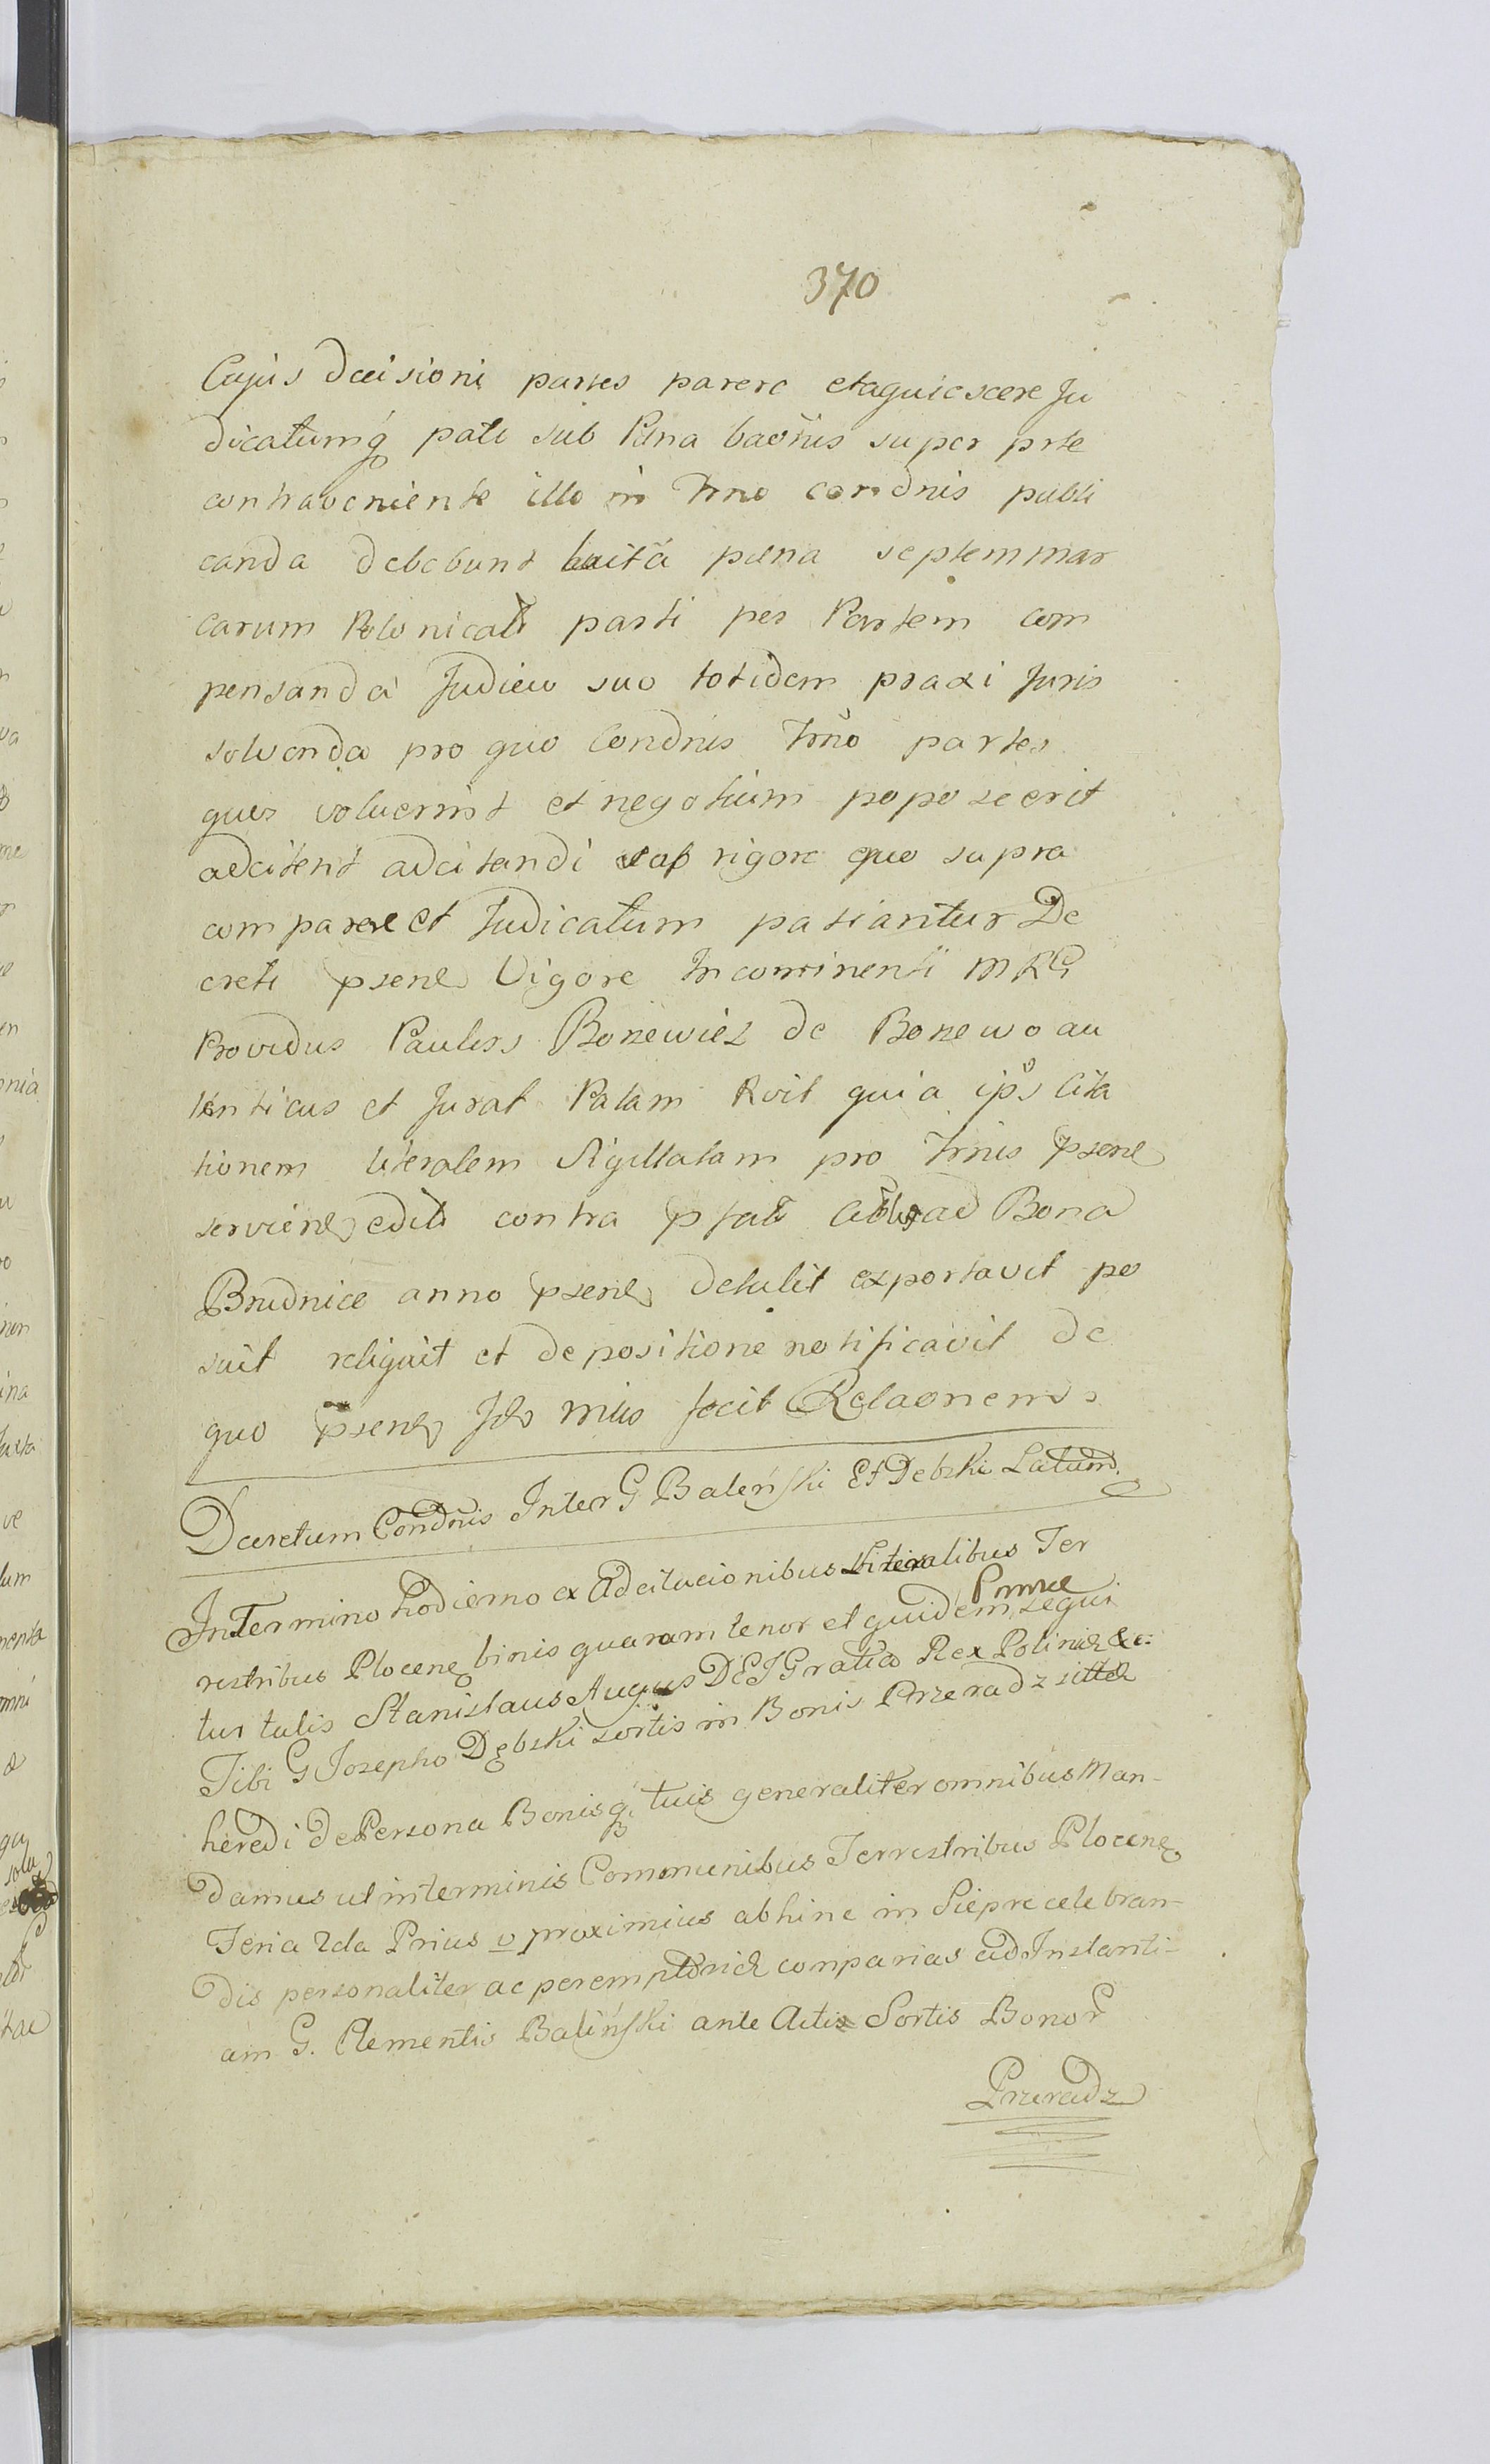 370
Cujus Decisioni partes parere etaquiescere Ju
dicatumq pati sub Pena baõnis super prte
contraveniente illo in Trno condnis publi
canda debebunt luitã pena septemmar
carum Polonicalĩ parti per Partem com
pensanda Judicio suo totidem praxi Juris
solvenda pro quo Condnis Trno partes
ques voluerint et negotium poposcerit
adcitent adcitandi sub rigore quo supra
comparere et Judicatum patiantur De
creti psene Vigore Incontinenti MRG
Providus Paulus Bonewicz de Bonewo au
tenticus et Jurat Palam Rvit quia ips Cita
tionem literalem Sigillatam pro Trnis psene
serviene editi contra psati ad Bona
Brudnice anno psene detulit exportavit po
suit reliquit et depositione notificavit de
quo psene Jds mltis fecit Relaonem
Decretum Condnis Inter G Baleński Et Debski Latum
In Termino hodierno ex Adcitacionibus Literalibus Ter
restribus Plocene binis quarum tenor et quidem Primæ sequi
tur talis Stanislaus Augus DEI Gratia Rex Polinia &c:
Tibi G Josepho Dębski sortis in Bonis Przeradz
heredi de Persona Bonisq tuis generaliter omnibus Man-
damus ut in terminis Communibus Terrestribus Plocene
Feria 2da Prius v proximius abhinc in Sieprc celebran-
dis personaliter ac peremptorie compareas ad Instanti-
am G. Clementis Baliński ante Actis Sortis Bonor
Przeradz